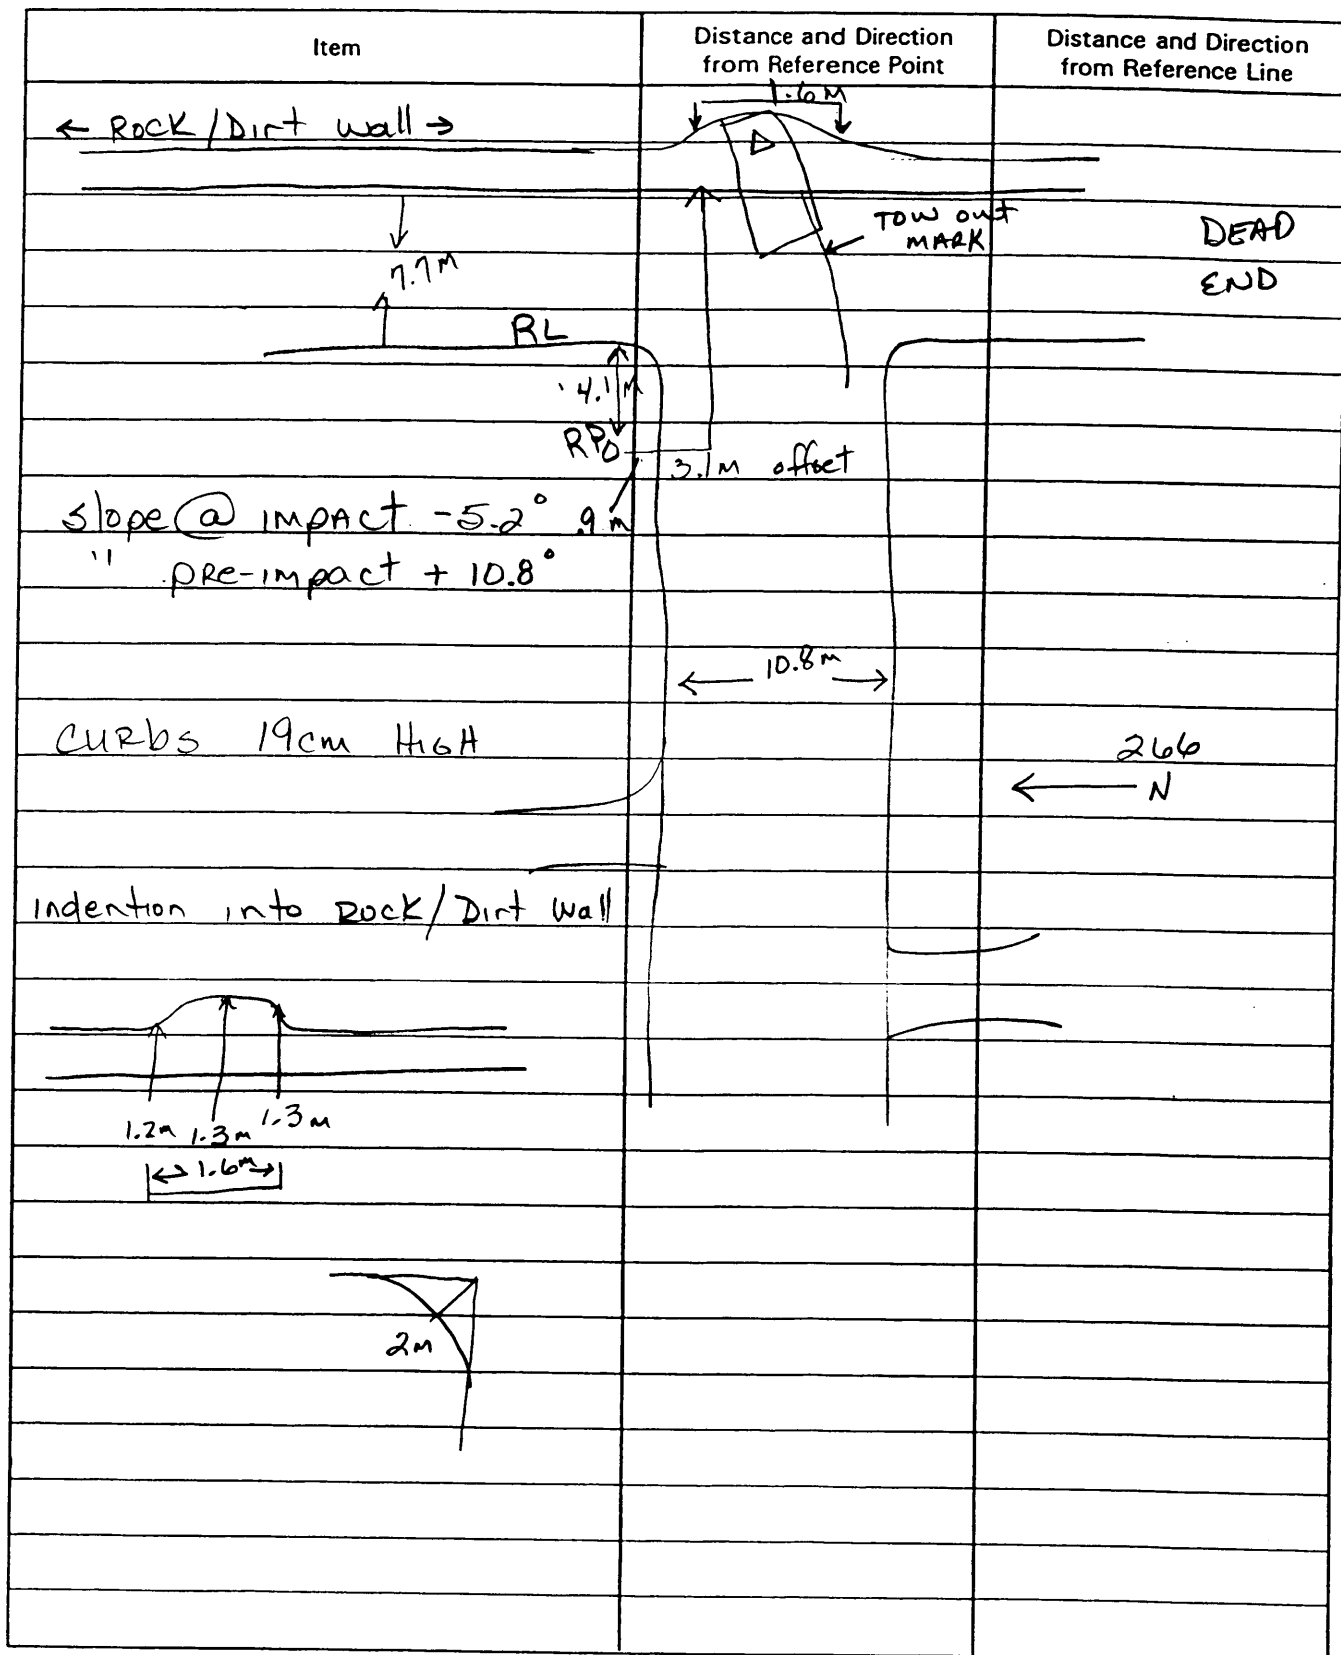 Item
Distance and Direction
from Reference Point
Distance and Direction
from Reference Line
1.6 M
← Rock / Dirt Wall →
D
TOW OUT
MARK
DEAD
END
7.7 M
RL
4.1 M
RP
3.1 M offset
.9 m
slope @ IMPACT -5.2°
" PRE-IMPACT + 10.8°
10.8 m
CURBS 19cm HIGH
266
← N
Indention into ROCK/Dirt Wall
1.2m 1.3m 1.3m
1.6m
2M